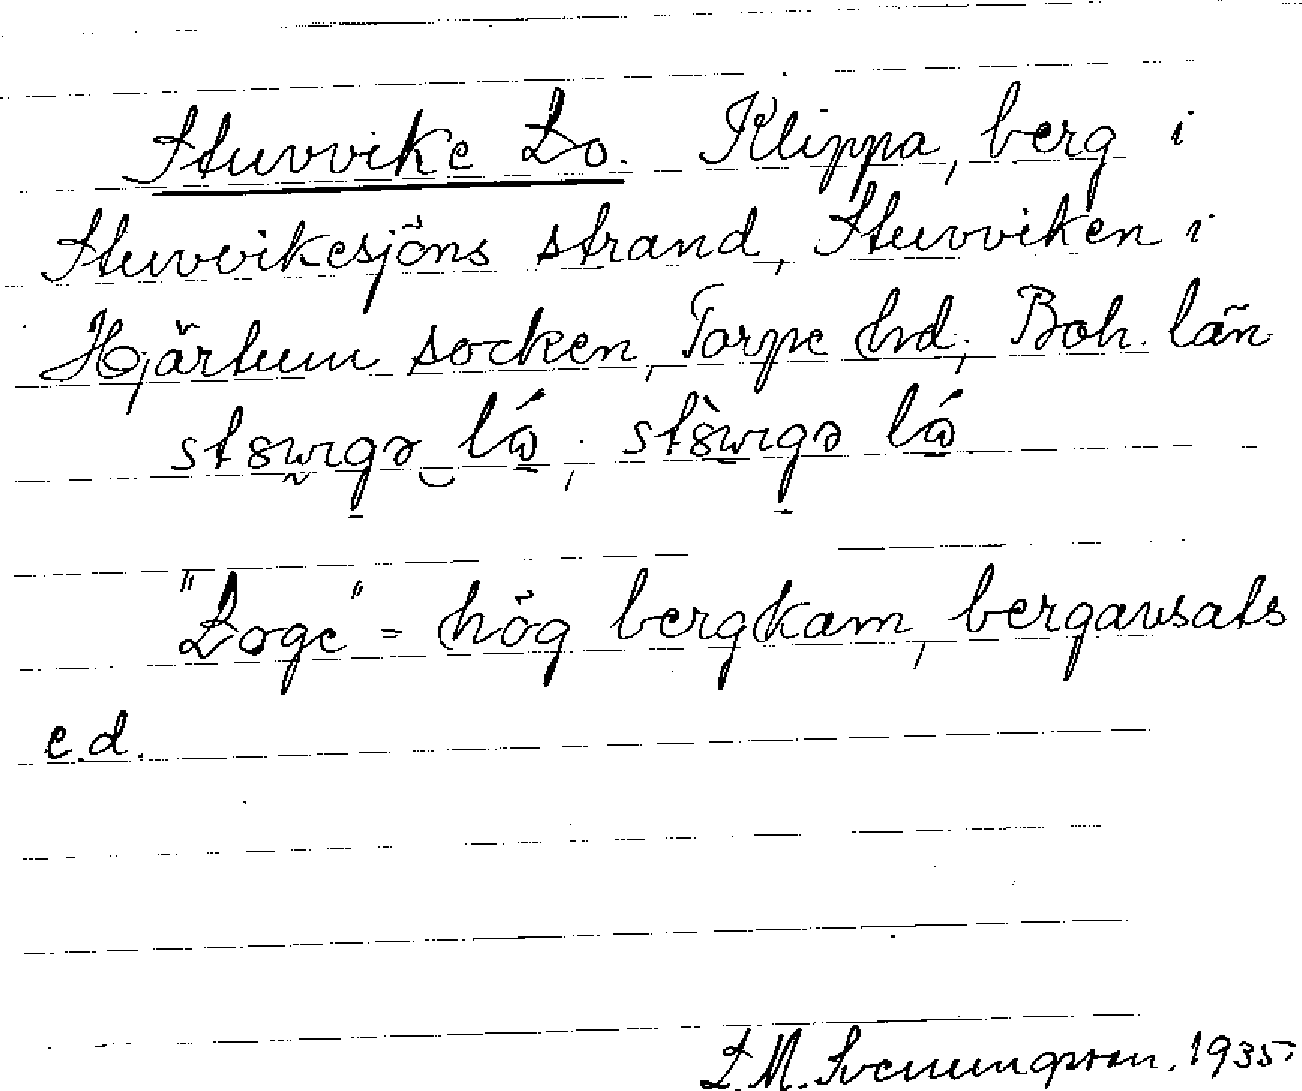 Stuvvike Lo. Klippa, berg i
Stuvvikesjöns strand, Stuvviken i
Hjärtum socken, Torpe hd, Boh. län
"Loge" = hög bergkam, bergavsats
e.d.
L. M. Svenungsson. 1935